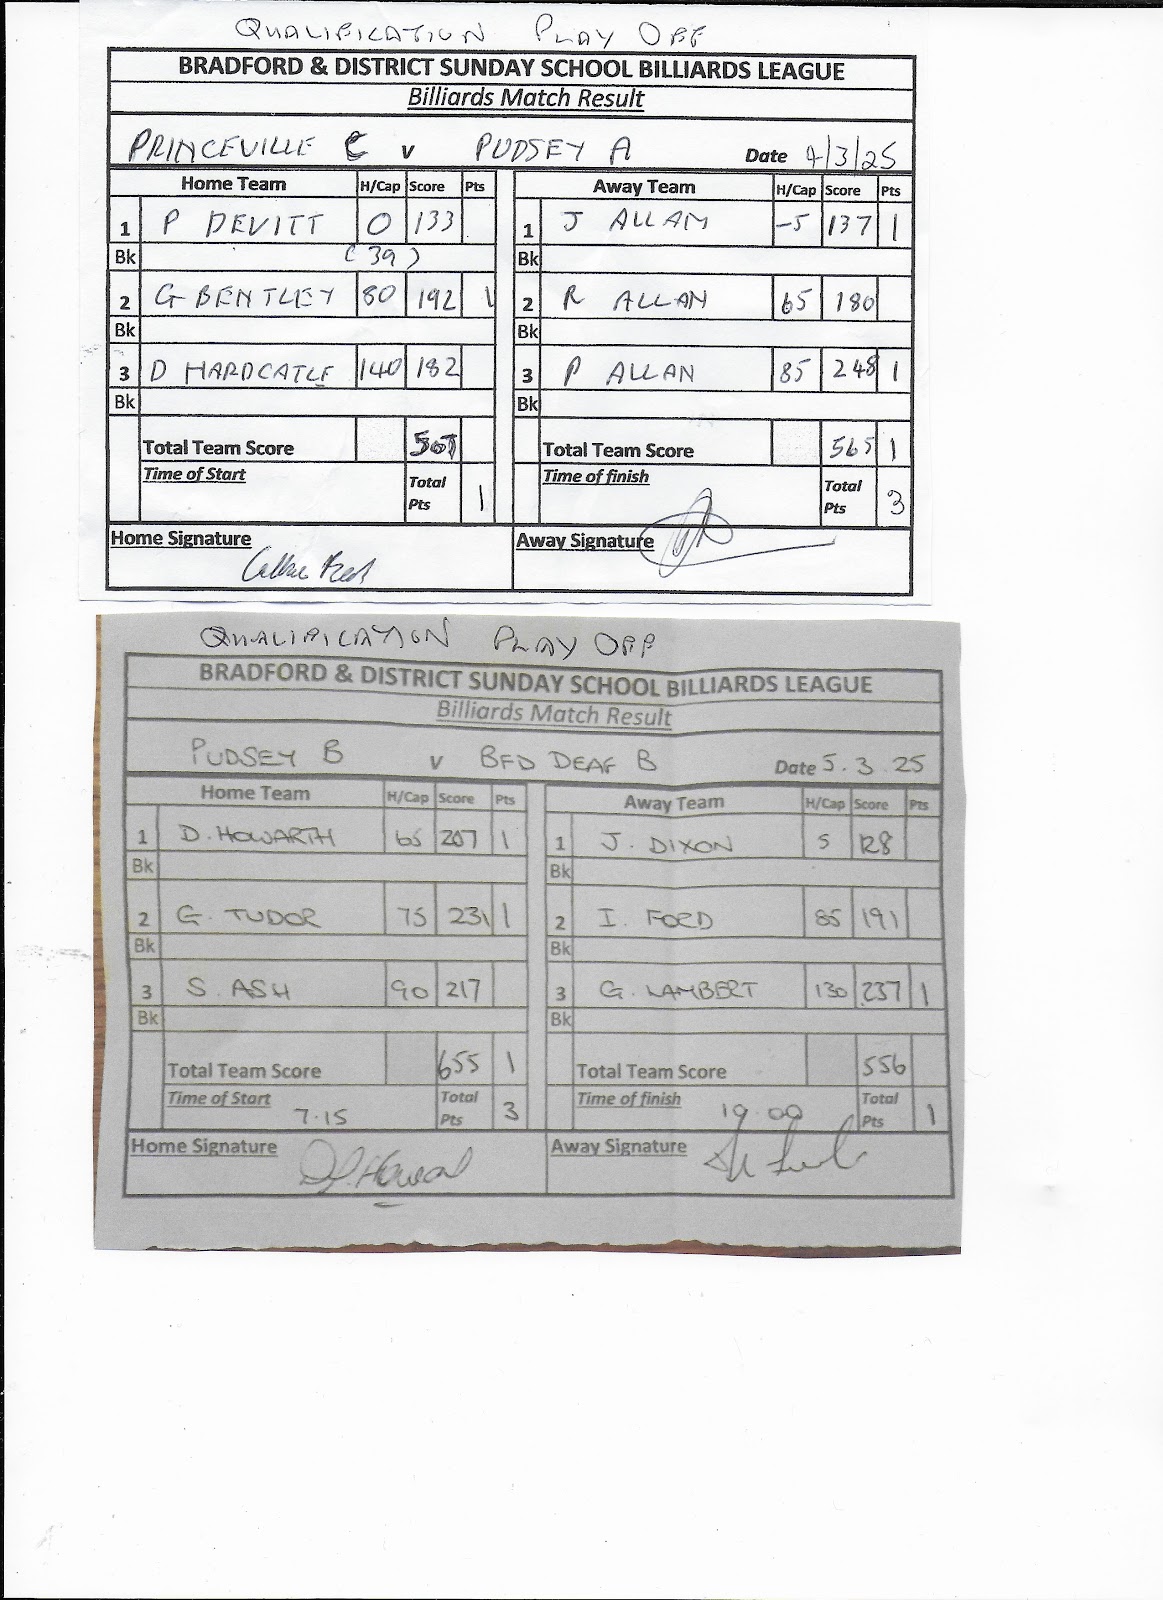 QUALIFICATION PLAY OFF
BRADFORD & DISTRICT SUNDAY SCHOOL BILLIARDS LEAGUE
Billiards Match Result
PRINCEVILLE C v PUDSEY A Date 4/3/25
Home Team H/Cap Score Pts Away Team H/Cap Score Pts
1 P DEVITT 0 133 1 J ALLAM -5 137 1
Bk (39) Bk
2 G BENTLEY 80 192 1 2 R ALLAN 65 180
Bk Bk
3 D HARDCATLE 140 182 3 P ALLAN 85 248 1
Bk Bk
Total Team Score 507 Total Team Score 565 1
Time of Start Total Pts 1 Time of finish Total Pts 3
Home Signature Away Signature
QUALIFICATION PLAY OFF
BRADFORD & DISTRICT SUNDAY SCHOOL BILLIARDS LEAGUE
Billiards Match Result
PUDSEY B v BFD DEAF B Date 5.3.25
Home Team H/Cap Score Pts Away Team H/Cap Score Pts
1 D. HOWARTH 65 207 1 1 J. DIXON 5 128
Bk Bk
2 G. TUDOR 75 231 1 2 I. FORD 85 191
Bk Bk
3 S. ASH 90 217 3 G. LAMBERT 130 237 1
Bk Bk
Total Team Score 655 1 Total Team Score 556
Time of Start 7.15 Total Pts 3 Time of finish 19.00 Total Pts 1
Home Signature Away Signature